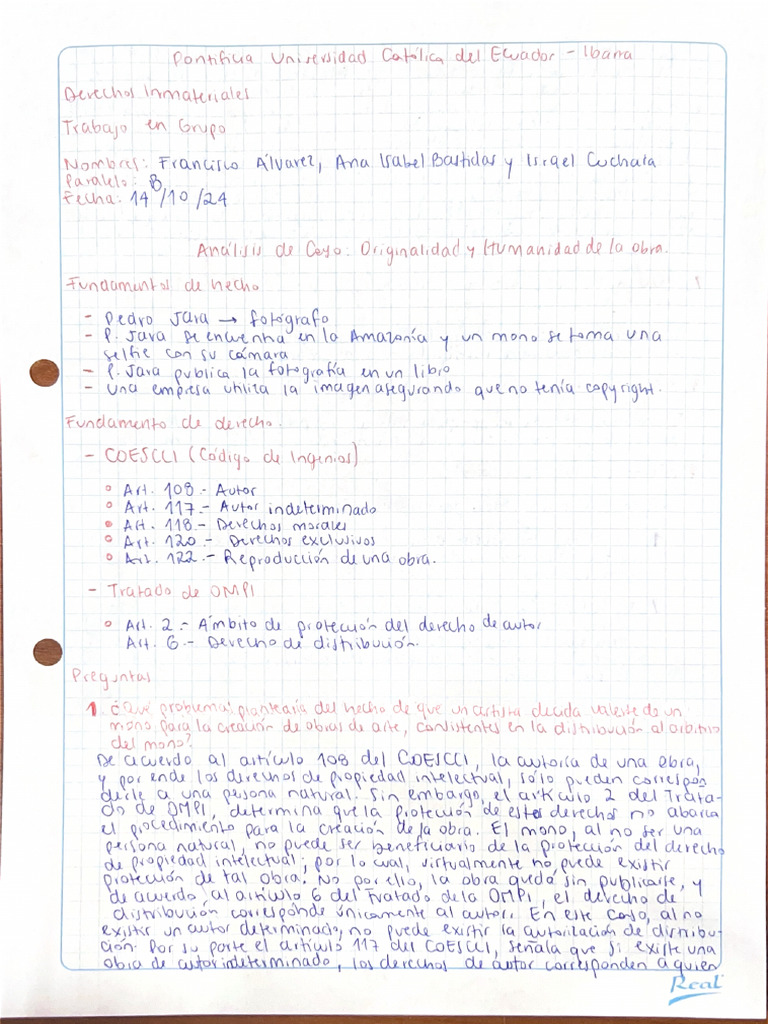 Pontificia Universidad Católica del Ecuador - Ibarra
Derechos Inmateriales
Trabajo en Grupo
Nombres: Francisco Álvarez, Ana Isabel Bastidas y Israel Cuchala
Paralelo: B
Fecha: 14/10/24
Análisis de Caso: Originalidad y Humanidad de la obra.
Fundamentos de hecho
- Pedro Jara → fotógrafo
- P. Jara se encuentra en la Amazonía y un mono se toma una
selfie con su cámara
- P. Jara publica la fotografía en un libro
- Una empresa utiliza la imagen asegurando que no tenía copyright.
Fundamento de derecho.
- COESCCI (Código de Ingenios)
• Art. 108.- Autor
• Art. 117.- Autor indeterminado
• Art. 118.- Derechos morales
• Art. 120.- Derechos exclusivos
• Art. 122.- Reproducción de una obra.
- Tratado de OMPI
• Art. 2.- Ámbito de protección del derecho de autor
Art. 6.- Derecho de distribución.
Preguntas
1. ¿Qué problema plantearía del hecho de que un artista decida valerse de un
mono, para la creación de obras de arte, consistentes en la distribución al arbitrio
del mono?
De acuerdo al artículo 108 del COESCCI, la autoría de una obra,
y por ende los derechos de propiedad intelectual, sólo pueden correspon
derle a una persona natural. Sin embargo, el artículo 2 del Trata-
do de OMPI, determina que la protección de estos derechos no abarca
el procedimiento para la creación de la obra. El mono, al no ser una
persona natural, no puede ser beneficiario de la protección del derecho
de propiedad intelectual; por lo cual, virtualmente no puede existir
protección de tal obra. No por ello, la obra queda sin publicarse, y
de acuerdo, al artículo 6 del Tratado de la OMPI, el derecho de
distribución corresponde únicamente al autor. En este caso, al no
existir un autor determinado, no puede existir la autorización de distribu-
ción. Por su parte el artículo 117 del COESCCI, señala que si existe una
obra de autor indeterminado, los derechos de autor corresponden a quien
Real